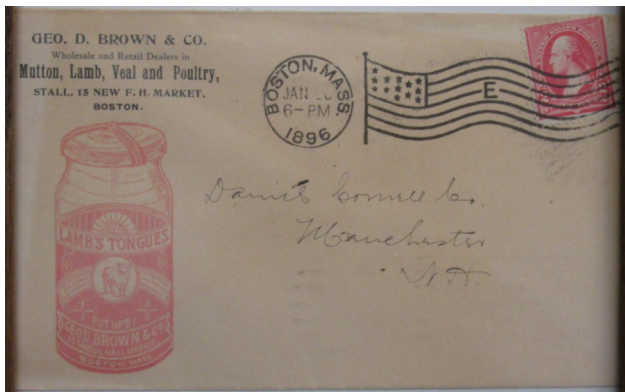 GEO. D. BROWN & CO.
Wholesale and Retail Dealers in
Mutton, Lamb, Veal and Poultry,
STALL, 15 NEW F. H. MARKET,
BOSTON.
BOSTON, MASS.
JAN
6-PM
1896
E
LAMB'S TONGUES
PUT UP BY
GEO. D. BROWN & CO.
HALL MARKET
BOSTON, MASS.
Daniels Cornell Co.
Manchester
N.H.